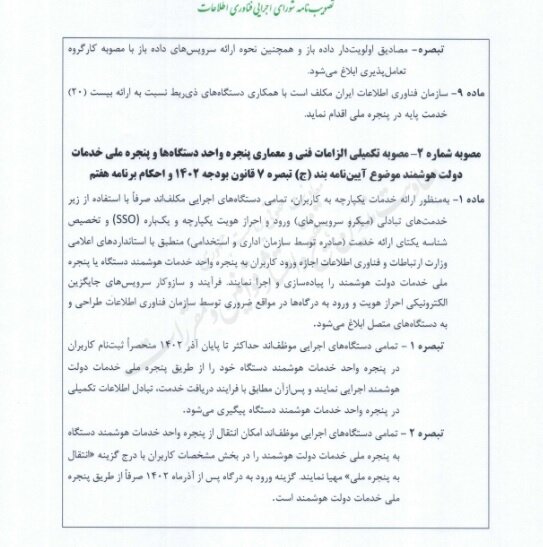 تصویب‌نامه شورای اجرایی فناوری اطلاعات
تبصره- مصادیق اولویت‌دار داده باز و همچنین نحوه ارائه سرویس‌های داده باز با مصوبه کارگروه
تعامل‌پذیری ابلاغ می‌شود.
ماده ۹- سازمان فناوری اطلاعات ایران مکلف است با همکاری دستگاه‌های ذی‌ربط نسبت به ارائه بیست (۲۰)
خدمت پایه در پنجره ملی اقدام نماید.
مصوبه شماره ۲- مصوبه تکمیلی الزامات فنی و معماری پنجره واحد دستگاه‌ها و پنجره ملی خدمات
دولت هوشمند موضوع آیین‌نامه بند (ج) تبصره ۷ قانون بودجه ۱۴۰۲ و احکام برنامه هفتم
ماده ۱- به‌منظور ارائه خدمات یکپارچه به کاربران، تمامی دستگاه‌های اجرایی مکلف‌اند صرفاً با استفاده از زیر
خدمت‌های تبادلی (میکرو سرویس‌های) ورود و احراز هویت یکپارچه و یک‌باره (SSO) و تخصیص
شناسه یکتای ارائه خدمت (صادره توسط سازمان اداری و استخدامی) منطبق با استانداردهای اعلامی
وزارت ارتباطات و فناوری اطلاعات اجازه ورود کاربران به پنجره واحد خدمات هوشمند دستگاه یا پنجره
ملی خدمات دولت هوشمند را پیاده‌سازی و اجرا نمایند. فرآیند و سازوکار سرویس‌های جایگزین
الکترونیکی احراز هویت و ورود به درگاه‌ها در مواقع ضروری توسط سازمان فناوری اطلاعات طراحی و
به دستگاه‌های متصل ابلاغ می‌شود.
تبصره ۱- تمامی دستگاه‌های اجرایی موظف‌اند حداکثر تا پایان آذر ۱۴۰۲ منحصراً ثبت‌نام کاربران
در پنجره واحد خدمات هوشمند دستگاه خود را از طریق پنجره ملی خدمات دولت
هوشمند اجرایی نمایند و پس‌ازآن مطابق با فرایند دریافت خدمت، تبادل اطلاعات تکمیلی
در پنجره واحد خدمات هوشمند دستگاه پیگیری می‌شود.
تبصره ۲- تمامی دستگاه‌های اجرایی موظف‌اند امکان انتقال از پنجره واحد خدمات هوشمند دستگاه
به پنجره ملی خدمات دولت هوشمند را در بخش مشخصات کاربران با درج گزینه «انتقال
به پنجره ملی» مهیا نمایند. گزینه ورود به درگاه پس از آذرماه ۱۴۰۲ صرفاً از طریق پنجره
ملی خدمات دولت هوشمند است.